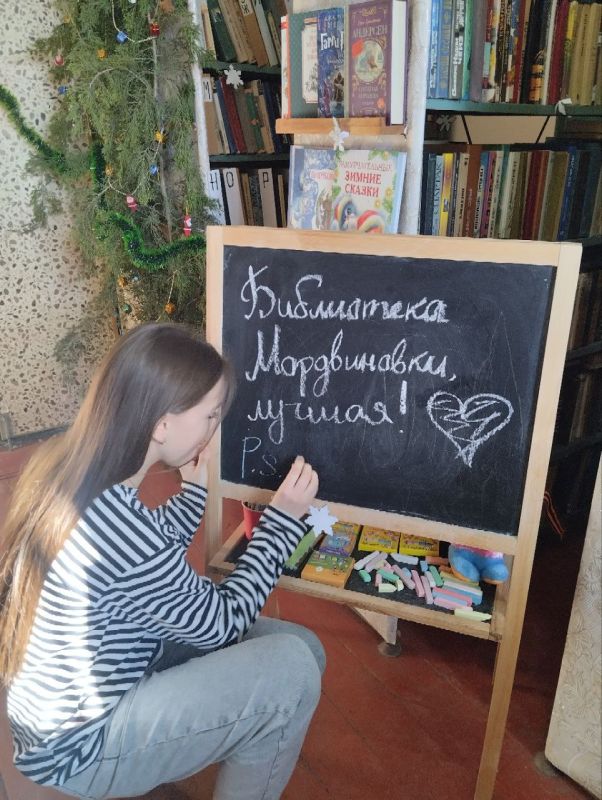 АНДЕРСЕН
ЗИМНИЕ
СКАЗКИ
М
Н О Р
Библиотека
Мордвиновки,
лучшая!
P.S.